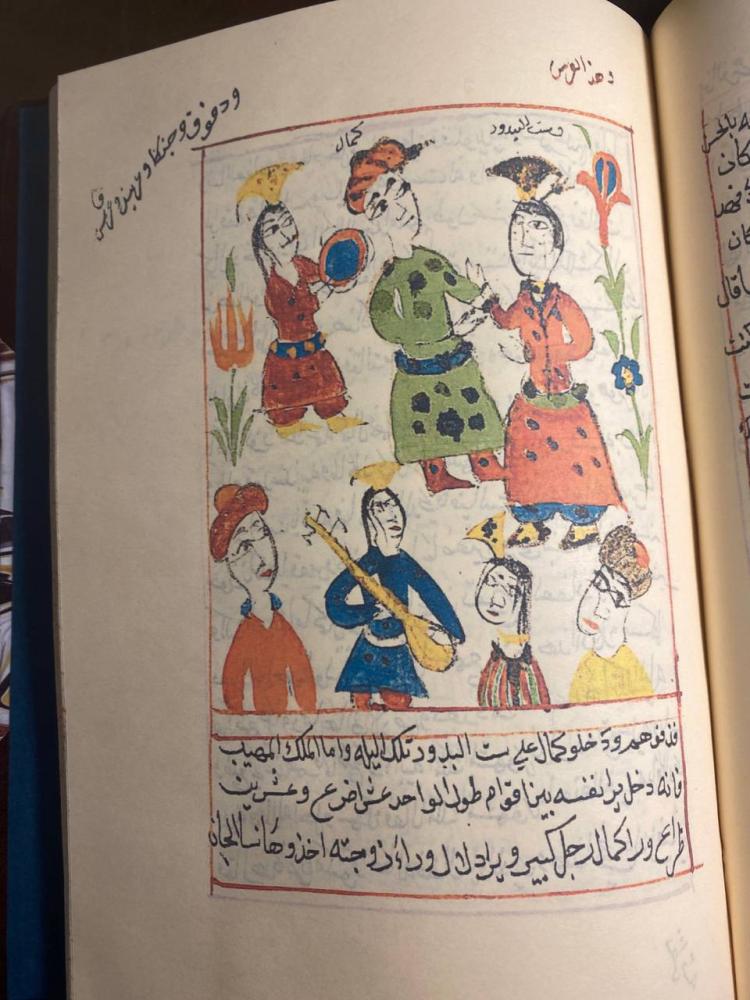 وهذا العرس
ودفوق وجنكا ومن
كمال
وست البدور
فزفوهم ودخلو كمال علي ست البدور تلك الليله واما الملك المهيب
فانه دخل يرا نفسه بين اقوام طول الواحد عشر اضرع وعشرين
ظراع ورا كمال رجل كبير ويراد لال وراء زوجته اخذوها نسا الجان